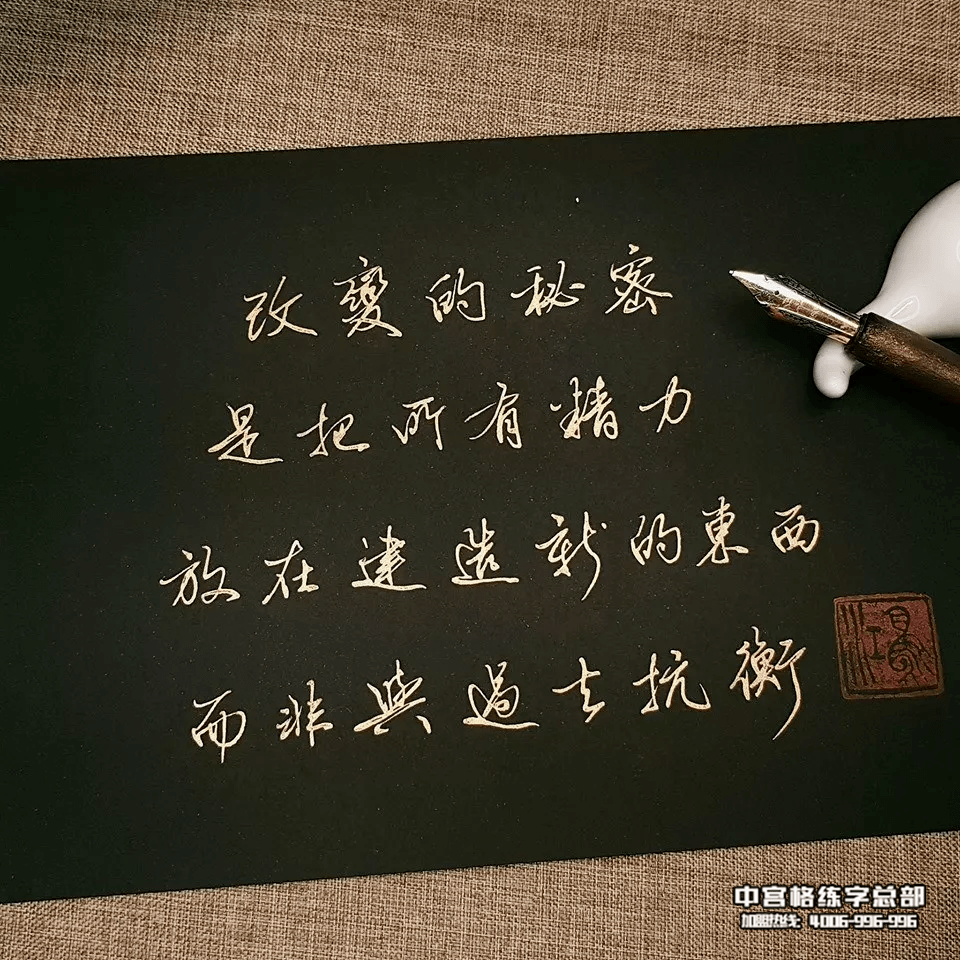 改變的秘密
是把所有精力
放在建造新的東西
而非與過去抗衡
中宫格练字总部
加盟热线: 4006-996-996